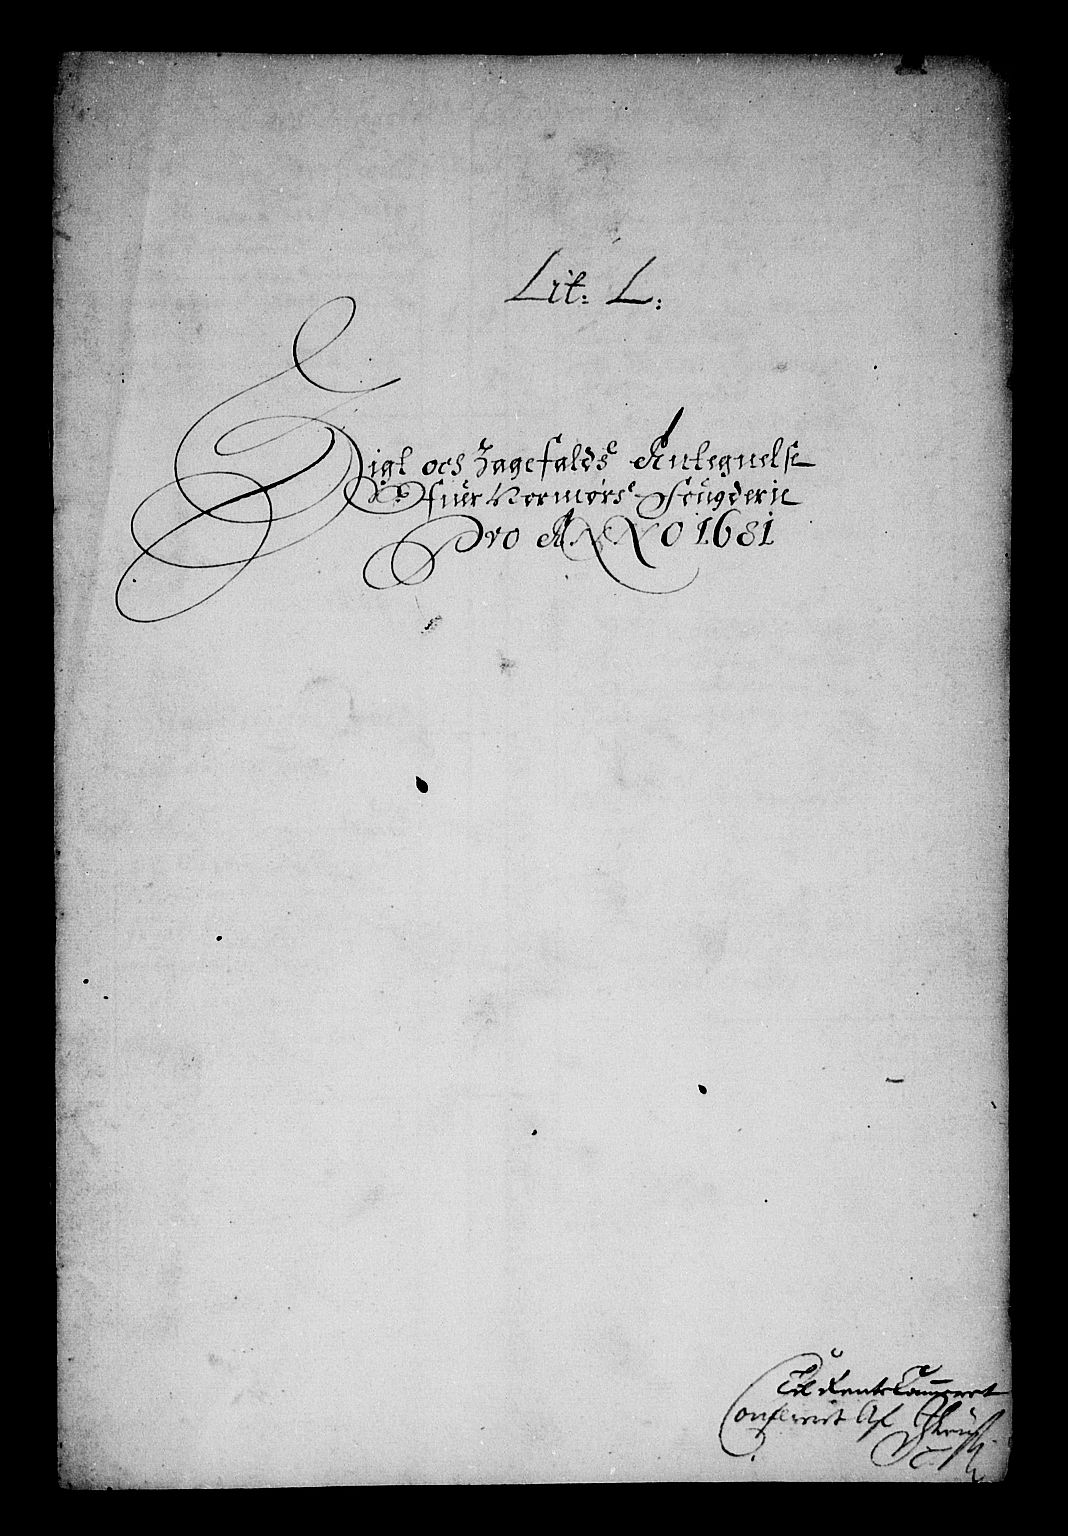 Lit: L:
Sigt och Sagefalds Antegnelse
ofuer Normørs Fougderie
Pro ANNO 1681
Til Rente Cammeret
Confererit Af